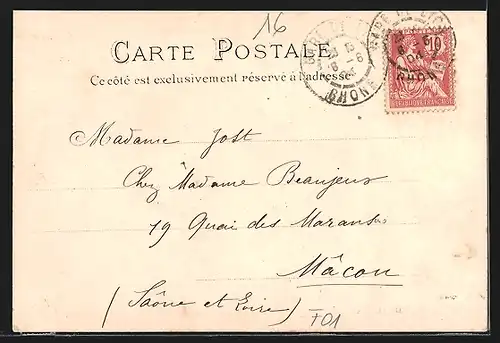 16
CARTE POSTALE
Ce côté est exclusivement réservé à l'adresse
10
RÉPUBLIQUE FRANÇAISE
RHONE
Madame Jost
Chez Madame Beaujeux
19 Quai des Marans
Mâcon
(Saône et Loire)
T01